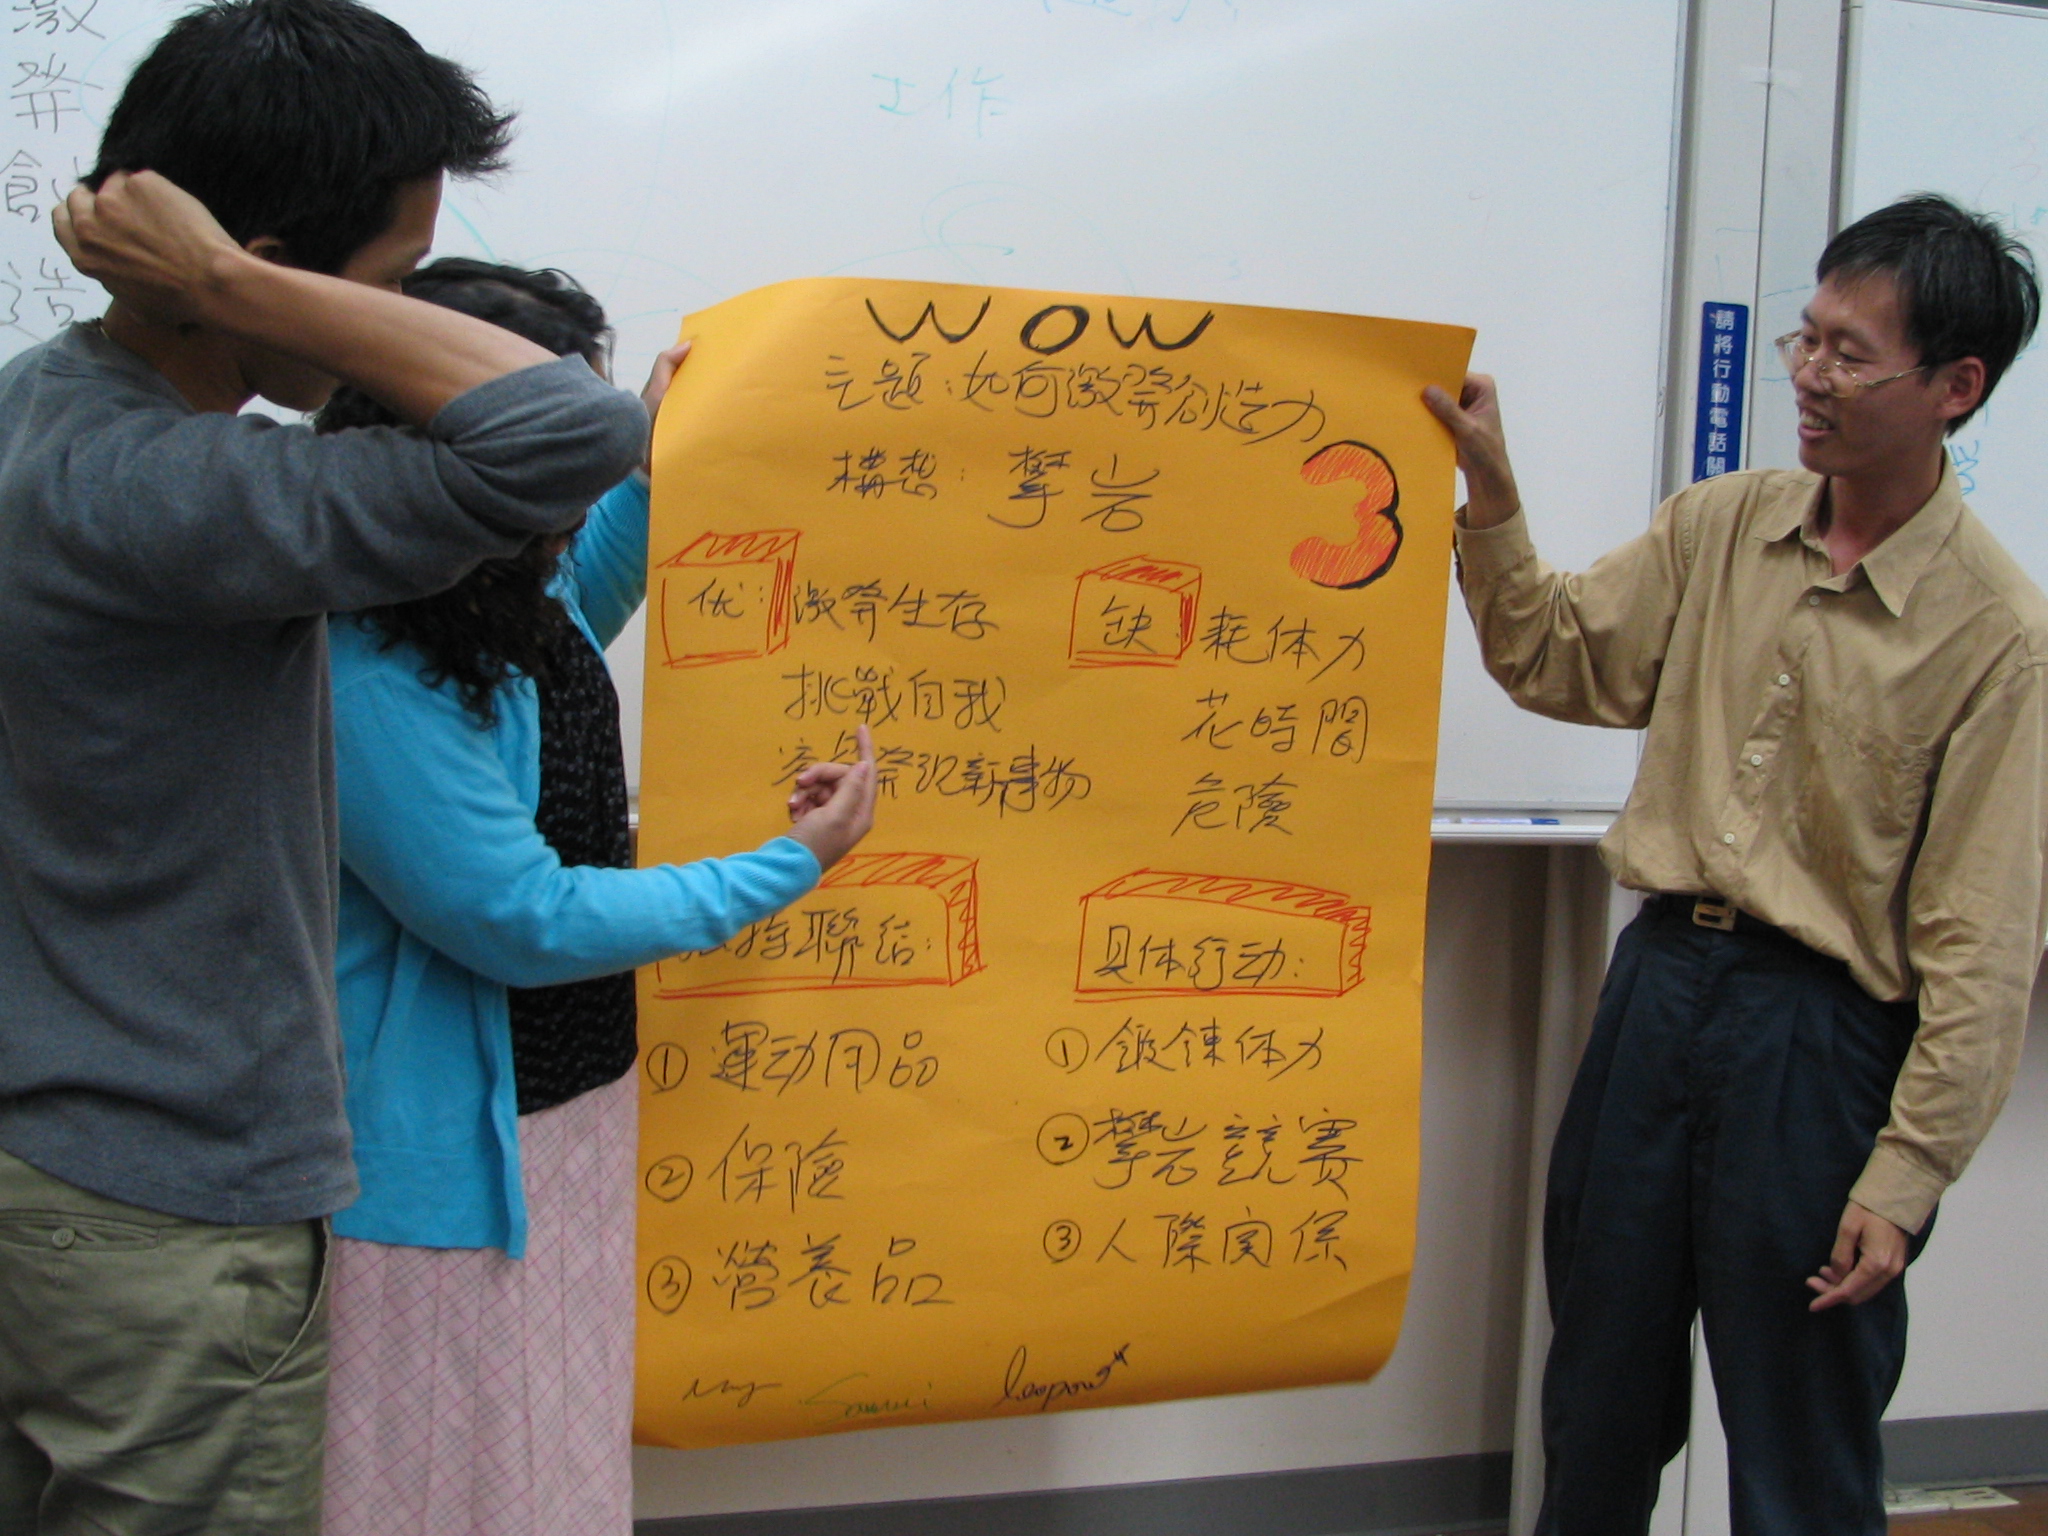 激
發
創
造
工作
請將行動電話關
WOW
主題:如何激發創造力
構想:攀岩
3
优:激發生存
挑戰自我
容易發現新事物
缺:耗体力
花時間
危險
持聯結:
①運动用品
②保險
③營養品
具体行动:
①鍛鍊体力
②攀岩競賽
③人際関係